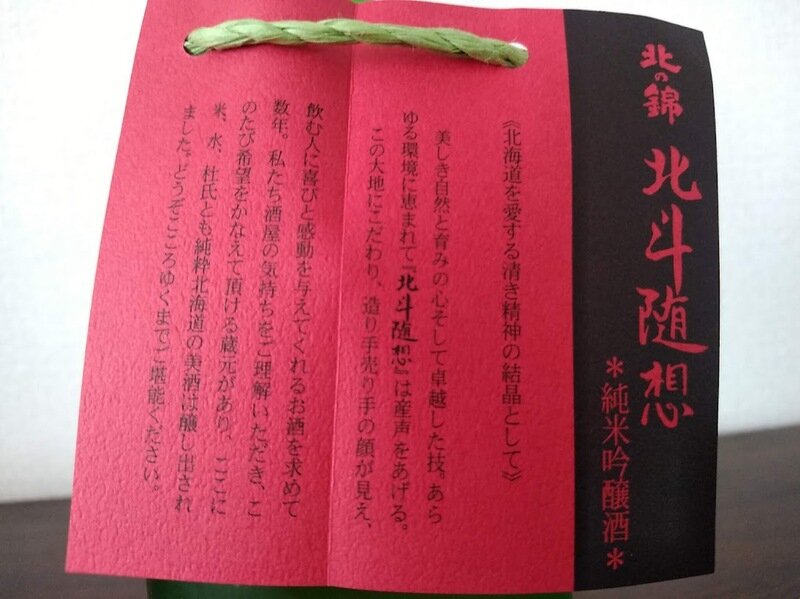 北の錦
北斗随想
＊純米吟醸酒＊
《北海道を愛する清き精神の結晶として》
美しき自然と育みの心そして卓越した技。あら
ゆる環境に恵まれて『北斗随想』は産声をあげる。
この大地にこだわり、造り手売り手の顔が見え、
飲む人に喜びと感動を与えてくれるお酒を求めて
数年。私たち酒屋の気持ちをご理解いただき、こ
のたび希望をかなえて頂ける蔵元があり、ここに
米、水、杜氏とも純粋北海道の美酒は醸し出され
ました。どうぞこころゆくまでご堪能ください。